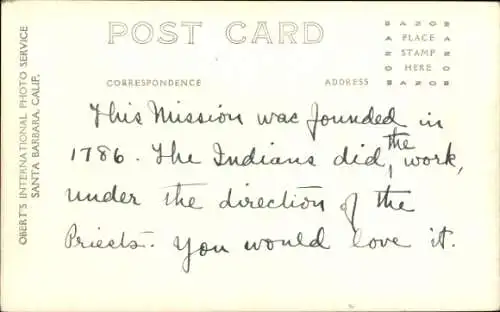 POST CARD
CORRESPONDENCE ADDRESS
AZO
PLACE
STAMP
HERE
AZO
OBERT'S INTERNATIONAL PHOTO SERVICE
SANTA BARBARA, CALIF.
This Mission was founded in
1786. The Indians did, the work,
under the direction of the
Priests. You would love it.